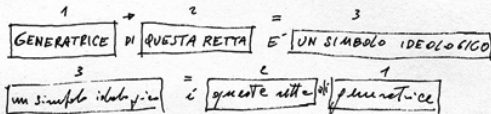 1 → 2 = 3
GENERATRICE DI QUESTA RETTA E' UN SIMBOLO IDEOLOGICO
3 = 2 1
un simbolo ideologico è questa retta di generatrice